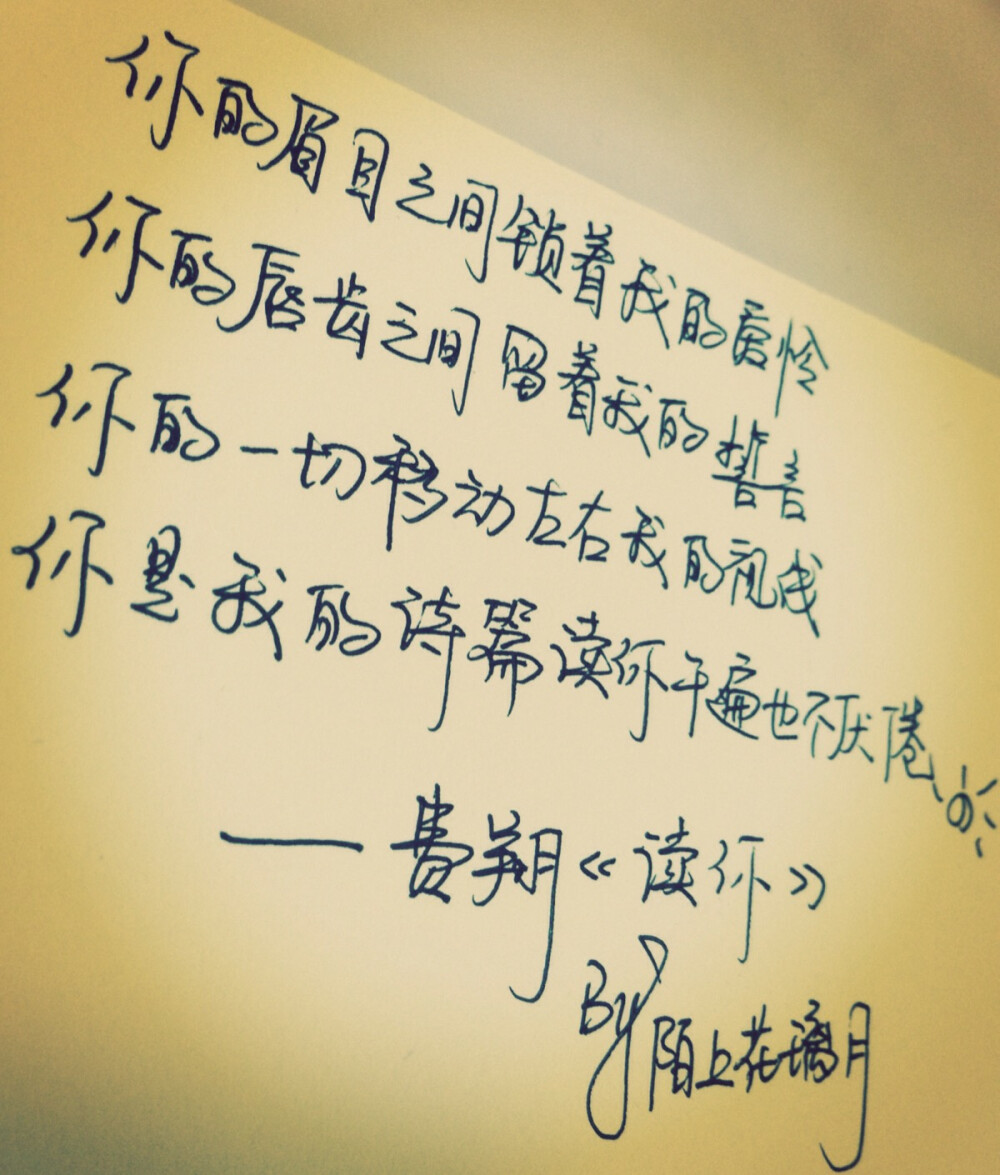 你的眉目之间锁着我的爱怜
你的唇齿之间留着我的誓言
你的一切移动左右我的视线
你是我的诗篇读你千遍也不厌倦。
——费翔《读你》
By陌上花璃月